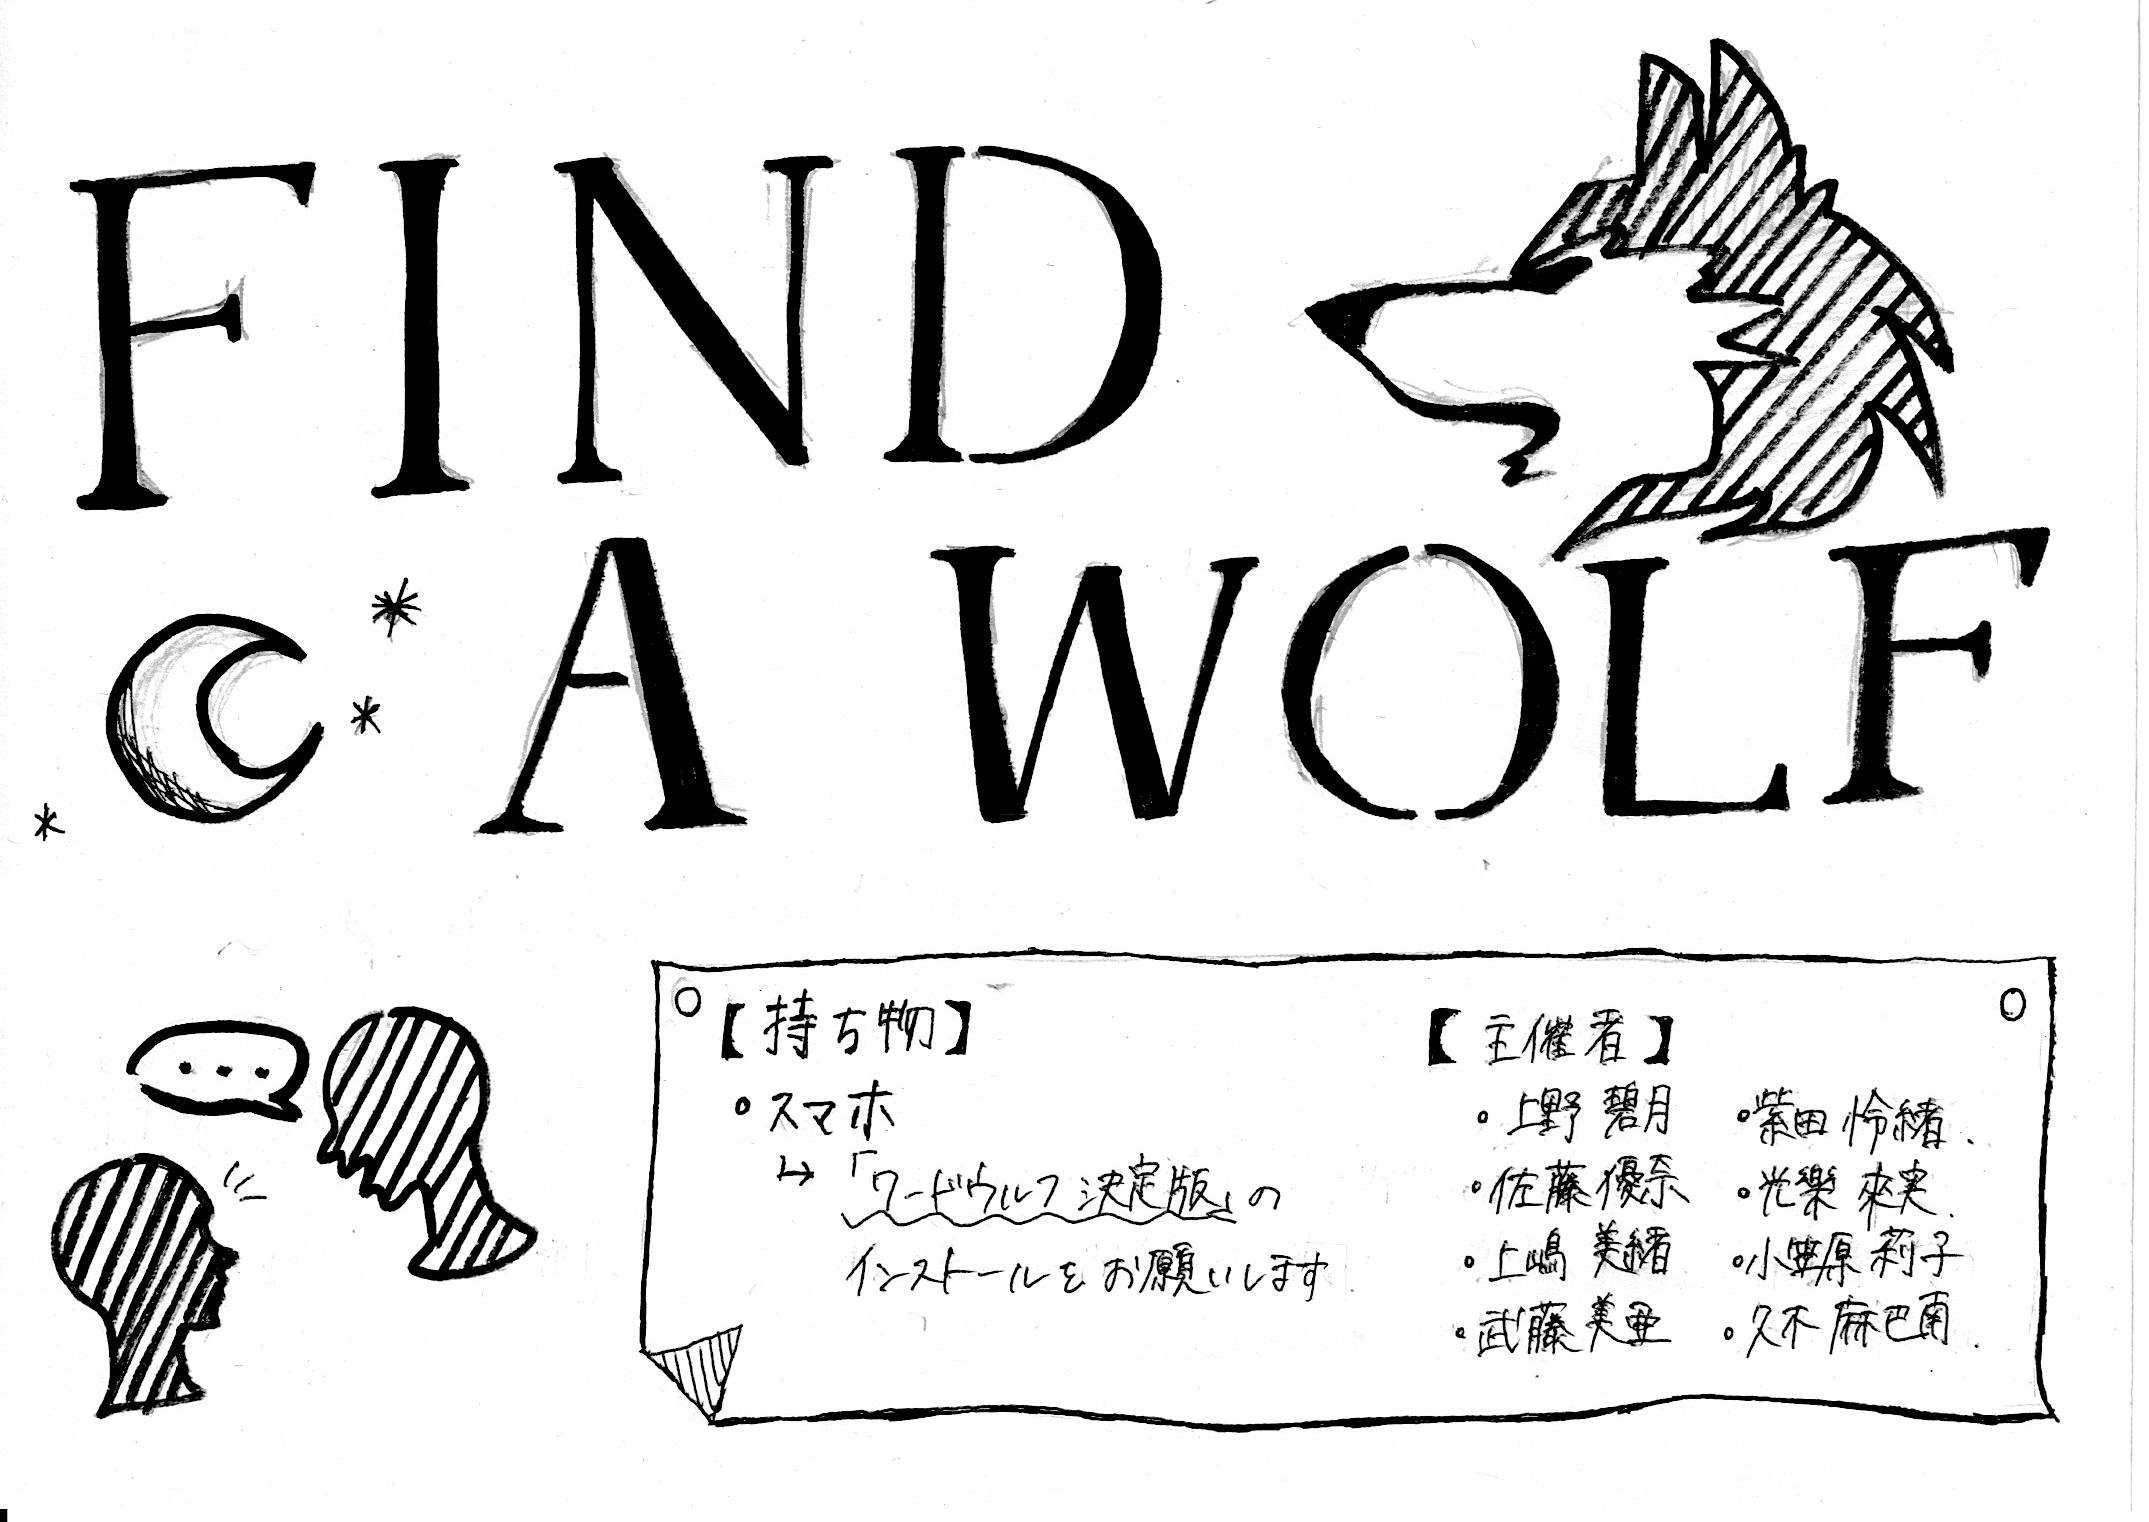 FIND
A WOLF
【持ち物】
・スマホ
↳「ワードウルフ決定版」の
インストールをお願いします
【主催者】
・上野 碧月
・佐藤 優奈
・上嶋 美緒
・武藤 美亜
・紫田 怜緒
・光樂 來実
・小笠原 莉子
・久木 麻巴南